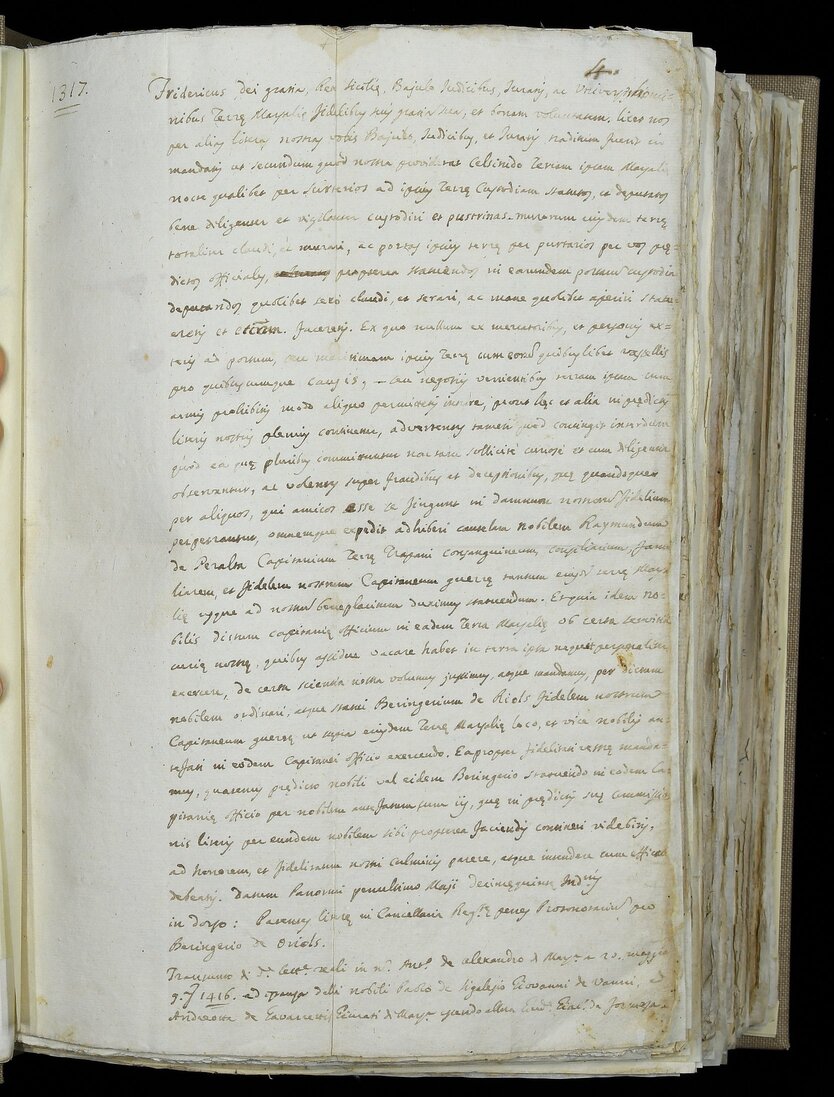 4.
1317.
Fridericus dei gratia, Rex Sicilię, Bajulo Judicibus, Juratis, ac Universis homi-
nibus Terrę Marsalię fidelibus suis gratiam suam, et bonam voluntatem, licet nos
per alias literas nostras vobis Bajulo, Judicibus, et Juratis traditum fuerit in
mandatis ut secundum quod nostra providerat Celsitudo Terram ipsam Marsalię
nocte qualibet per surterios ad ipsius Terrę Custodiam statutos, et deputatos
bene diligenter et vigilanter custodiri et pustrinas murorum eiusdem terrę
totaliter claudi, et murari, ac portas ipsius terrę per purtarios per vos prę-
dictos officiales, propterea statuendos in earundem portarum custodia
deputandos quolibet sero claudi, et serari, ac mane quolibet aperiri statue-
retis et faceretis. Ex quo nullum ex mercatoribus, et personis ex-
teris ad portum, seu maritimam ipsius Terrę cum quibuslibet vassellis
pro quibuscumque causis, seu negotijs venientibus terram ipsam cum
armis prohibitis modo aliquo permittatis intrare, prout hęc et alia in prędictis
literis nostris plenius continentur, advertentes tamen quod contingit interdum
quod ea quę pluribus committuntur non tam sollicitè curiosè et cum diligentia
observantur, ac volentes super fraudibus et deceptionibus, quę quandoque
per aliquos, qui amicos esse se fingunt in damnum nostrorum fidelium
perpetrantur, omnemque expedit adhiberi cautelam nobilem Raymundum
de Peralta Capitaneum Terrę Trapani consanguineum, consiliarium, fami-
liarem, et fidelem nostrum Capitaneum guerrę tantum eiusdem terrę Marsa-
lię usque ad nostrum beneplacitum duximus statuendum. Et quia idem no-
bilis dictum capitanię officium in eadem Terra Marsalię ob certa servitia
curię nostrę, quibus assidue vacare habet in terra ipsa nequit personaliter
exercere, de certa scientia nostra volumus jussimus, atque mandamus, per dictum
nobilem ordinari, atque statui Beringerium de Riols fidelem nostrum
Capitaneum guerrę ut supra eiusdem Terrę Marsalię loco, et vice nobilis an-
tefati in eodem Capitanei officio exercendo. Eapropter fidelitati vestrę manda-
mus, quatenus prędicto nobili vel eidem Beringerio statuendo in eodem Ca-
pitanię officio per nobilem antefatum sum ijs, quę in prędictis suę Commissio-
nis literis per eundem nobilem sibi propterea faciendis contineri videbitis,
ad honorem, et fidelitatem nostri culminis parere, atque intendere cum efficacia
debeatis. Datum Panormi penultimo Maij decimęquintę Indnis
in dorso: Patentes literę in Cancellaria Regię penes Protonotarium pro
Beringerio de Oriols.
Transunto di de lettere reali in nr Anto de Alexandro di Marsa a 20. maggio
9. Ind 1416. ad istanza delli nobili Paolo de Sigalesio Giovanni de Vanni, e
Anderotta de Tavarretta Giurati di Marsa essendo allora